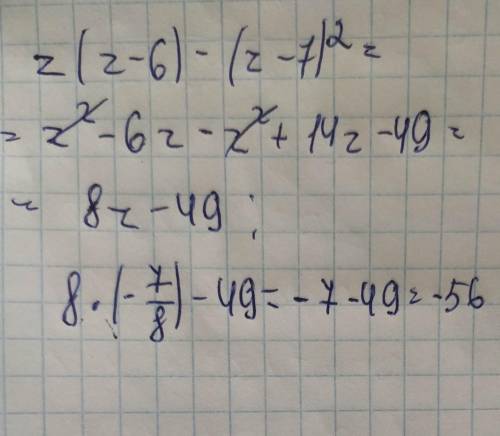 z(z-6)-(z-7)²=
= z²-6z-z²+14z-49=
= 8z-49;
8·(-7/8)-49=-7-49=-56